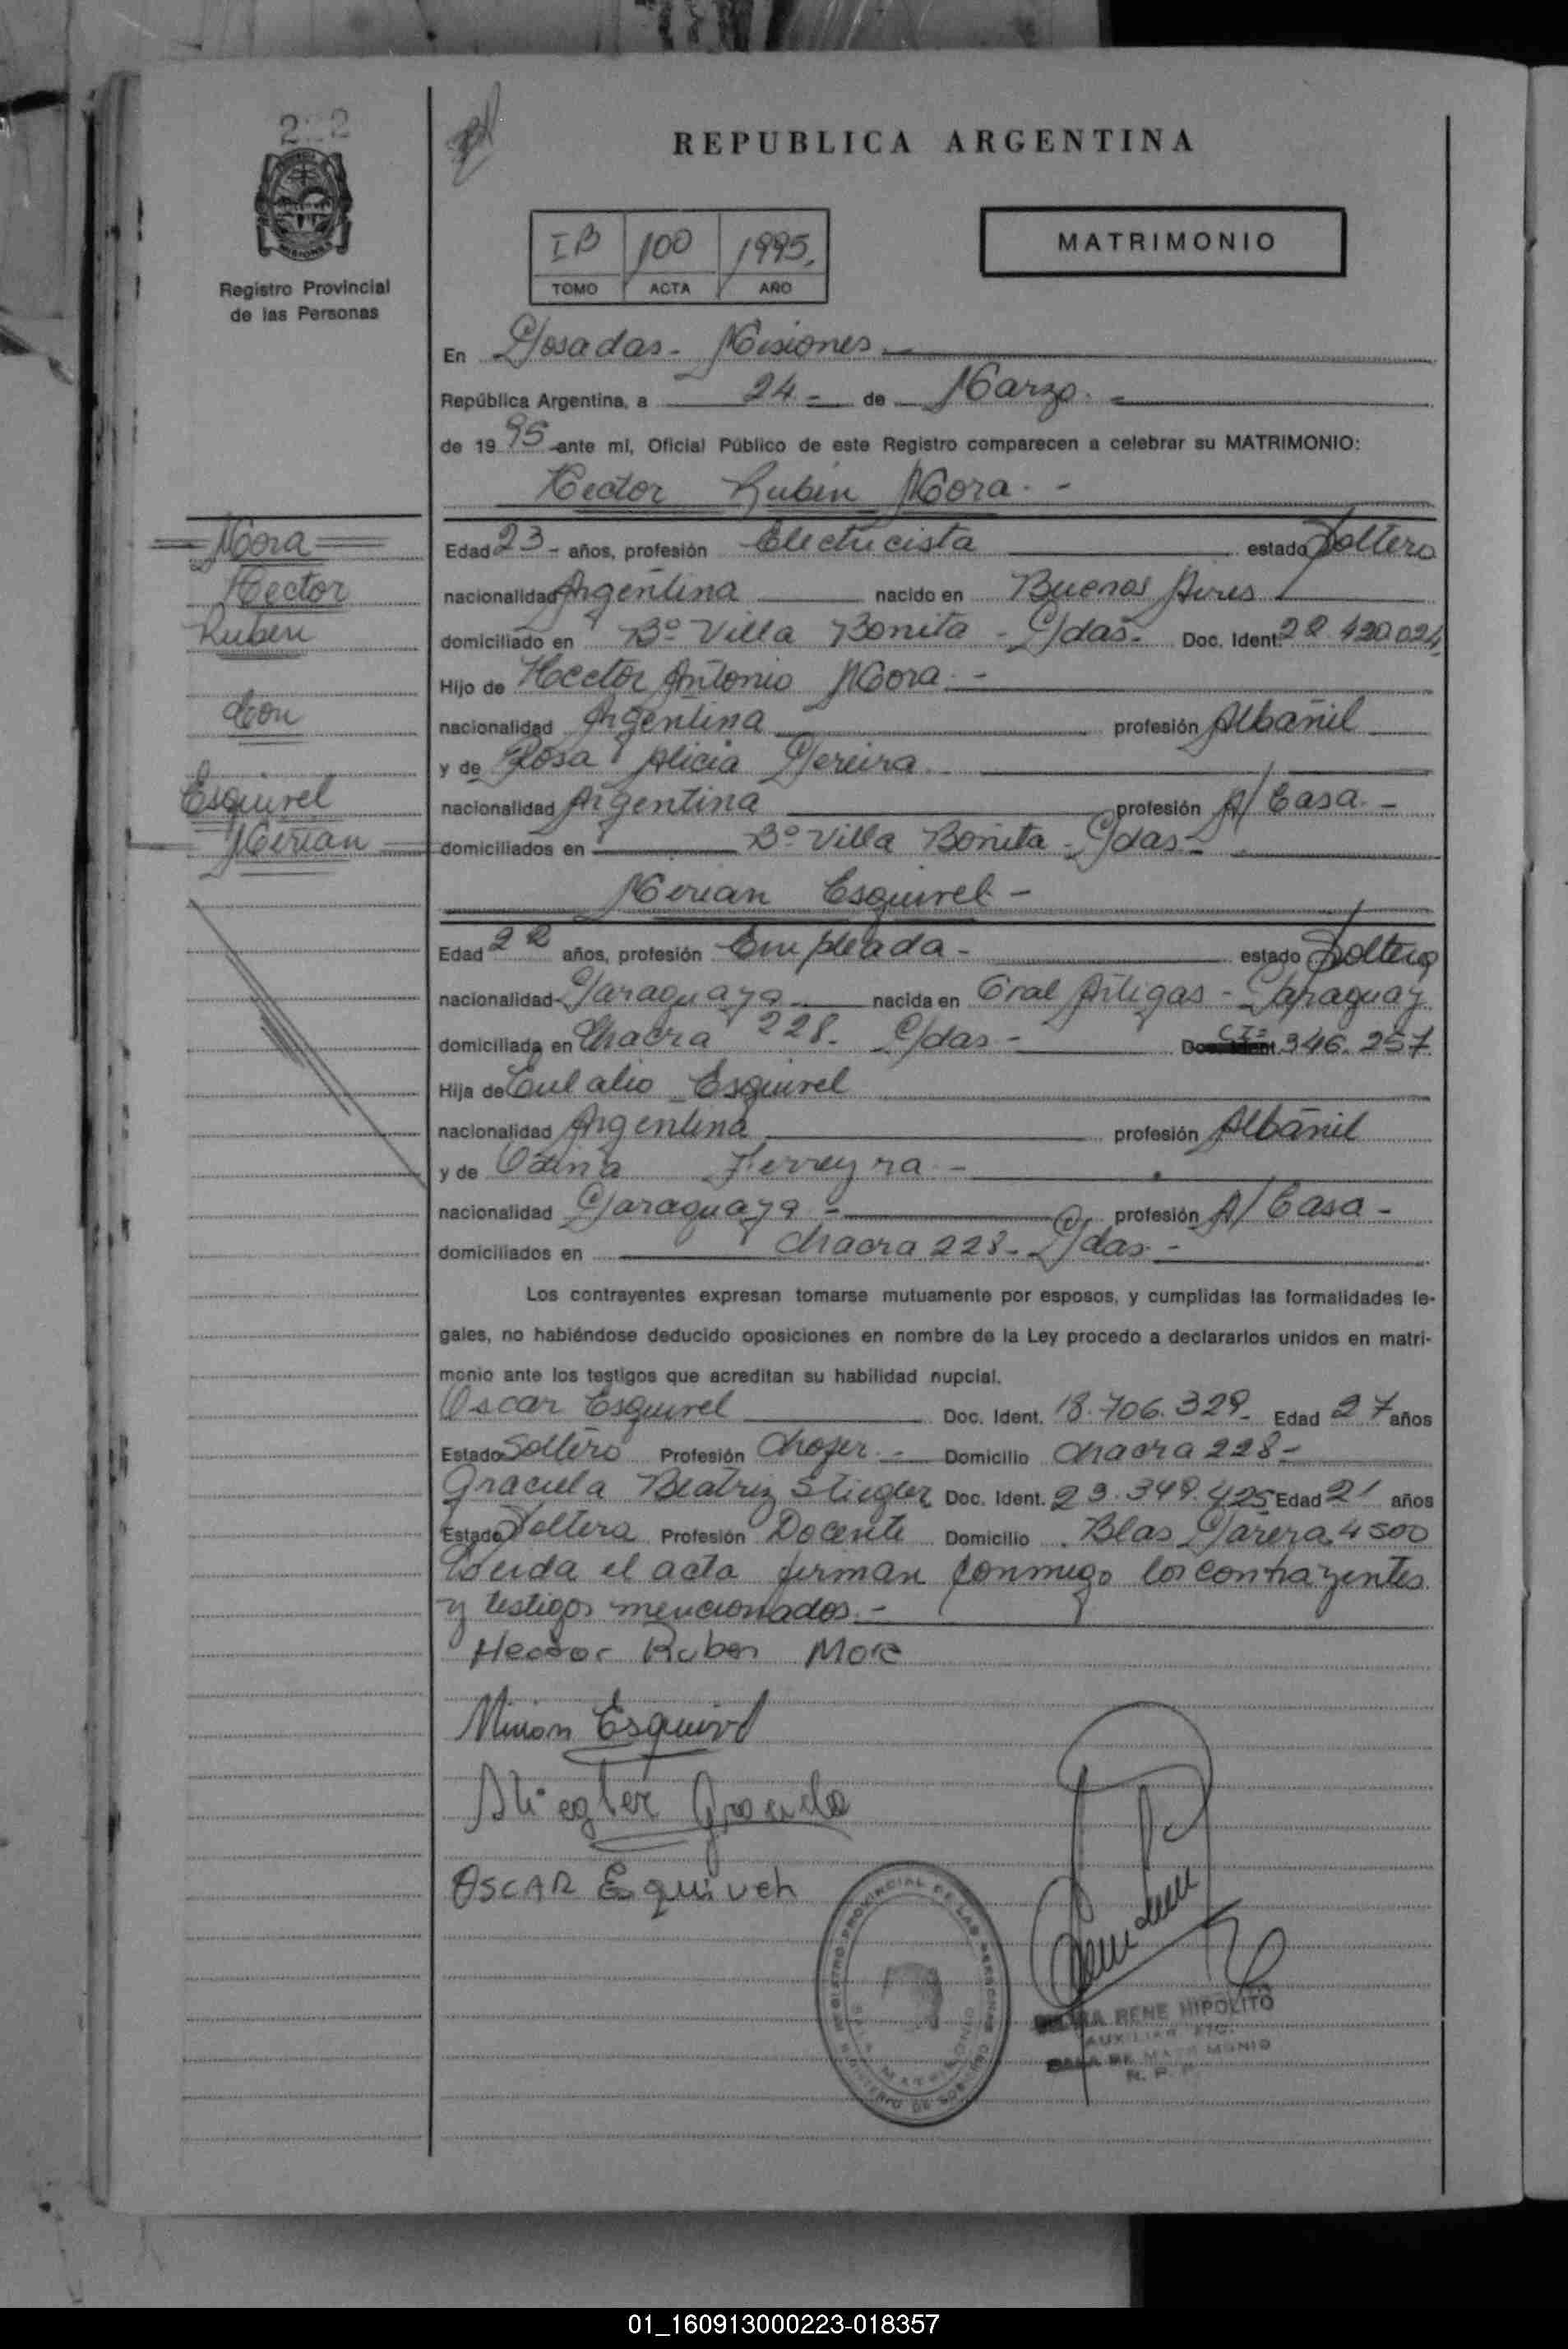 REPUBLICA ARGENTINA
Registro Provincial
de las Personas
IB 100 1995.
TOMO ACTA AÑO
MATRIMONIO
En Posadas - Misiones
República Argentina, a 24 - de Marzo. -
de 1995 ante mí, Oficial Público de este Registro comparecen a celebrar su MATRIMONIO:
Hector Rubén Mora. -
Mora
Hector
Ruben
Con
Esquivel
Mirian
Edad 23 - años, profesión Electricista estado Soltero
nacionalidad Argentina nacido en Buenos Aires
domiciliado en Bº Villa Bonita - Pdas. Doc. Ident. 22.420.024
Hijo de Hector Antonio Mora. -
nacionalidad Argentina profesión Albañil
y de Rosa Alicia Pereira
nacionalidad Argentina profesión A/ Casa. -
domiciliados en Bº Villa Bonita - Pdas -
Mirian Esquivel -
Edad 22 años, profesión Empleada - estado Soltera
nacionalidad Paraguaya nacida en Gral Artigas - Paraguay
domiciliada en Chacra 228. Pdas - 346.257
Hija de Eulalio Esquivel
nacionalidad Argentina profesión Albañil
y de Ferreyra -
nacionalidad Paraguaya - profesión A/ Casa -
domiciliados en Chacra 228 - Pdas -
Los contrayentes expresan tomarse mutuamente por esposos, y cumplidas las formalidades le-
gales, no habiéndose deducido oposiciones en nombre de la Ley procedo a declararlos unidos en matri-
monio ante los testigos que acreditan su habilidad nupcial.
Oscar Esquivel Doc. Ident. 18.706.329 - Edad 27 años
Estado Soltero Profesión Chofer. - Domicilio Chacra 228 -
Graciela Beatriz Stiegler Doc. Ident. 23.349.425 Edad 21 años
Estado Soltera Profesión Docente Domicilio Blas Parera 4500
Leida el acta firman conmigo los contrayentes
y testigos mencionados. -
Hector Ruben Mora
Mirian Esquivel
Stiegler Graciela
OSCAR Esquivel
REGISTRO PROVINCIAL DE LAS PERSONAS
RENE HIPOLITO
SALA DE MATRIMONIO
R. P. P.
01_160913000223-018357